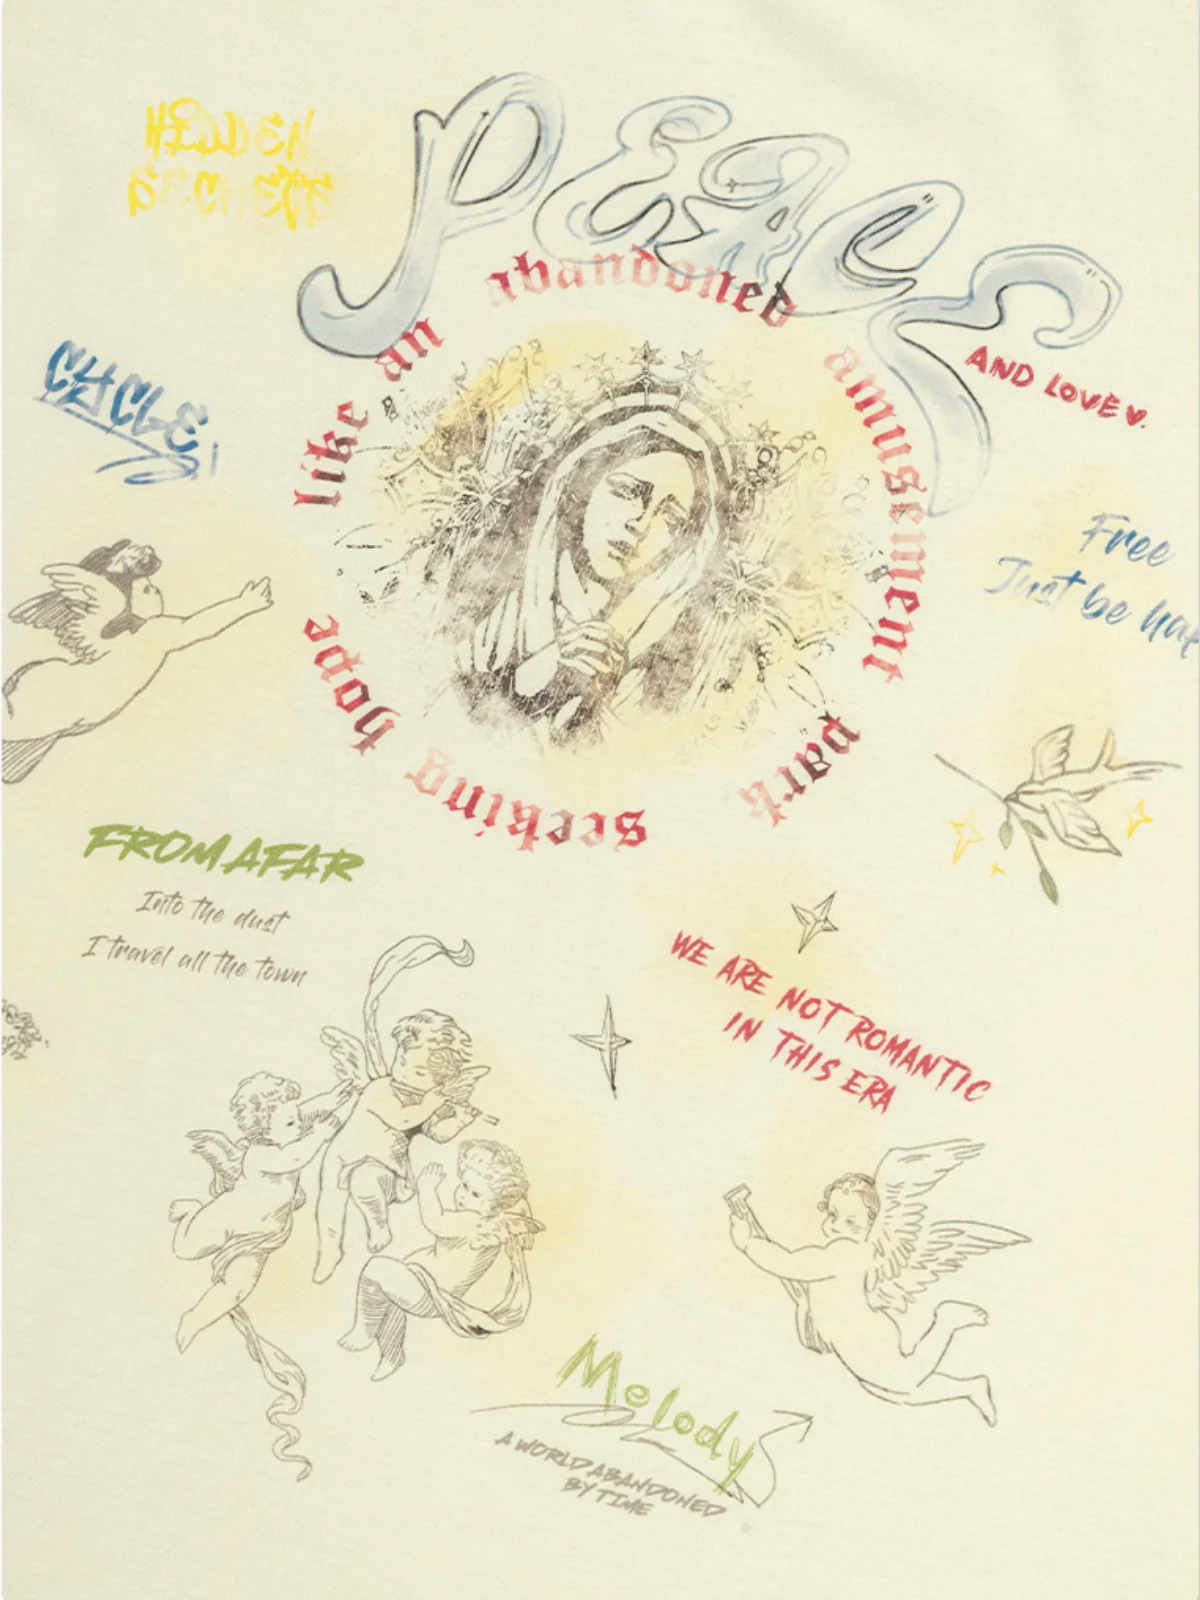 HIDDEN
SECRETS
PEACE
AND LOVE
like an abandoned amusement park seeking hope
CYCLE
Free
Just be
FROM AFAR
Into the dust
I travel all the town
WE ARE NOT ROMANTIC
IN THIS ERA
Melody
A WORLD ABANDONED
BY TIME